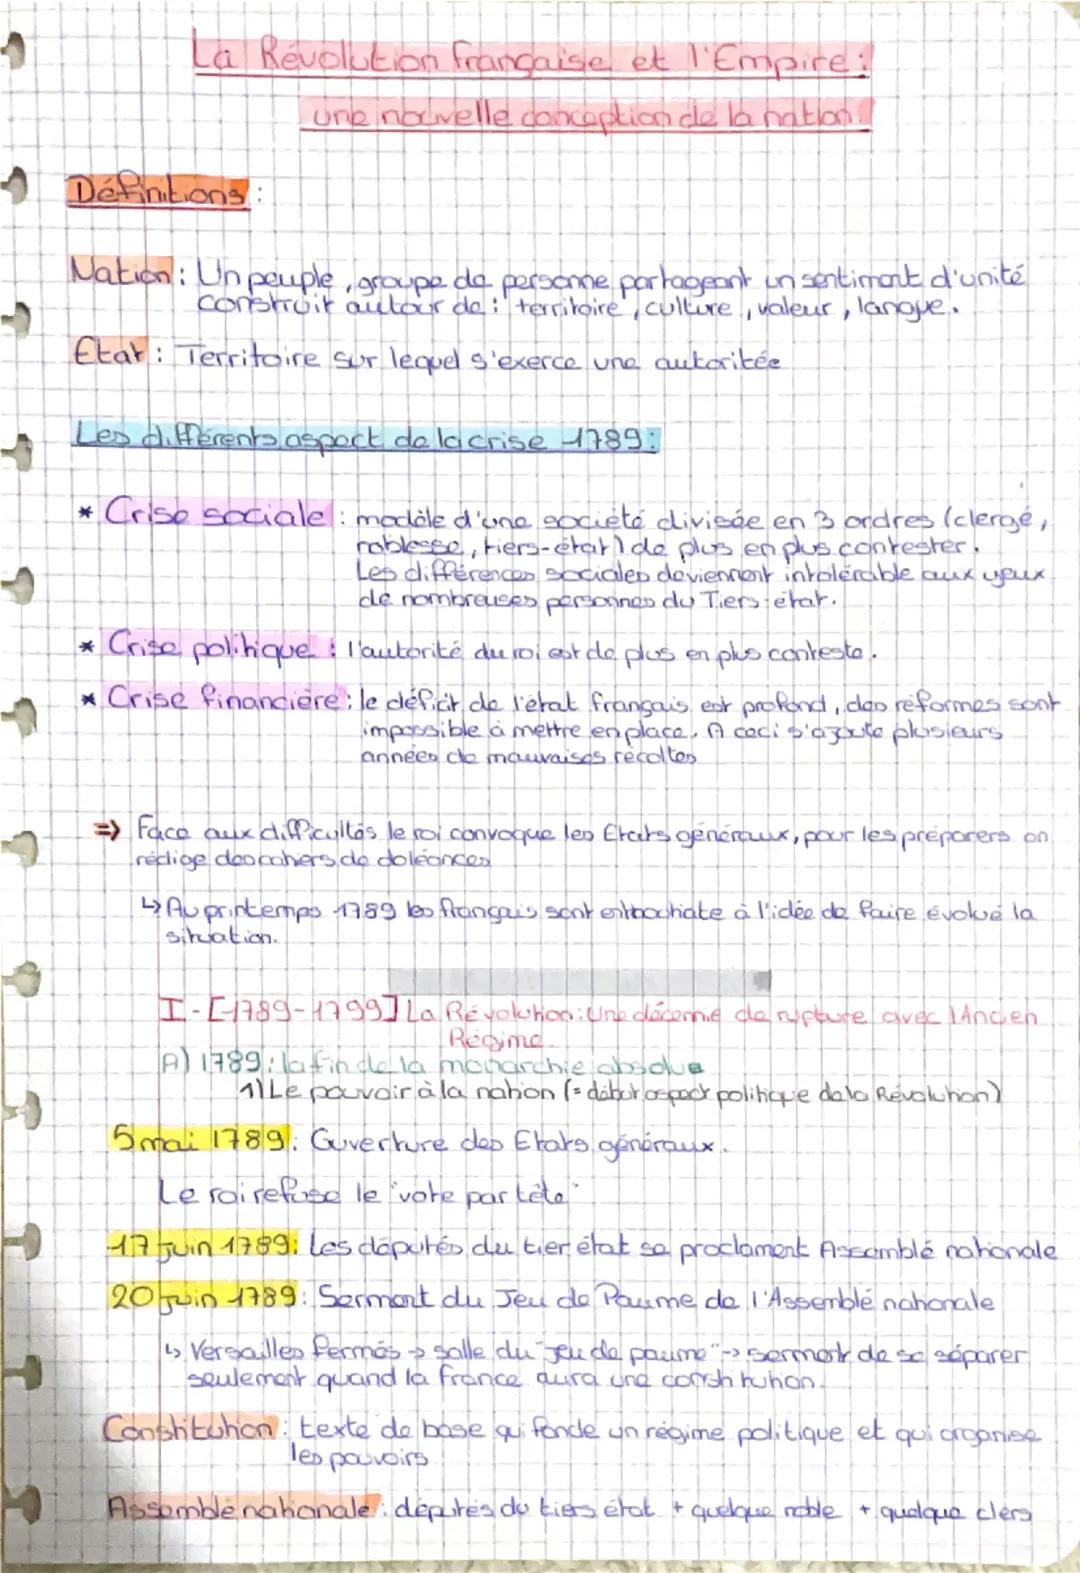 La Révolution française et l'Empire :
une nouvelle conception de la nation.
Définitions :
Nation : Un peuple, groupe de personne partageant un sentiment d'unité
construit autour de : territoire, culture, valeur, langue.
Etat : Territoire sur lequel s'exerce une autoritée
Les différents aspect de la crise 1789 :
* Crise sociale : modèle d'une société divisée en 3 ordres (clergé,
noblesse, tiers-état) de plus en plus contester.
Les différences sociales deviennent intolérable aux yeux
de nombreuses personnes du Tiers-état.
* Crise politique : l'autorité du roi est de plus en plus conteste.
* Crise financière : le déficit de l'état français est profond, des réformes sont
impossible à mettre en place. A ceci s'ajoute plusieurs
années de mauvaises récoltes
=> Face aux difficultés le roi convoque les Etats généraux, pour les préparers on
rédige des cahiers de doléances
↳ Au printemps 1789 les français sont enthochiate à l'idée de faire évolué la
situation.
I - [1789-1799] La Révolution : Une décennie de rupture avec l'Ancien
Régime
A) 1789 : la fin de la monarchie absolue
1) Le pouvoir à la nation (= début aspect politique de la Révolution)
5 mai 1789 : Ouverture des Etats généraux.
Le roi refuse le "vote par tête"
17 juin 1789 : Les députés du tier état se proclament Assemblé nationale
20 juin 1789 : Serment du Jeu de Paume de l'Assemblé nationale
↳ Versailles fermés → salle du "jeu de paume" → serment de se séparer
seulement quand la france aura une constitution.
Constitution : texte de base qui fonde un régime politique et qui organise
les pouvoirs
Assemblé nationale : députés du tiers état + quelque noble + quelque clers